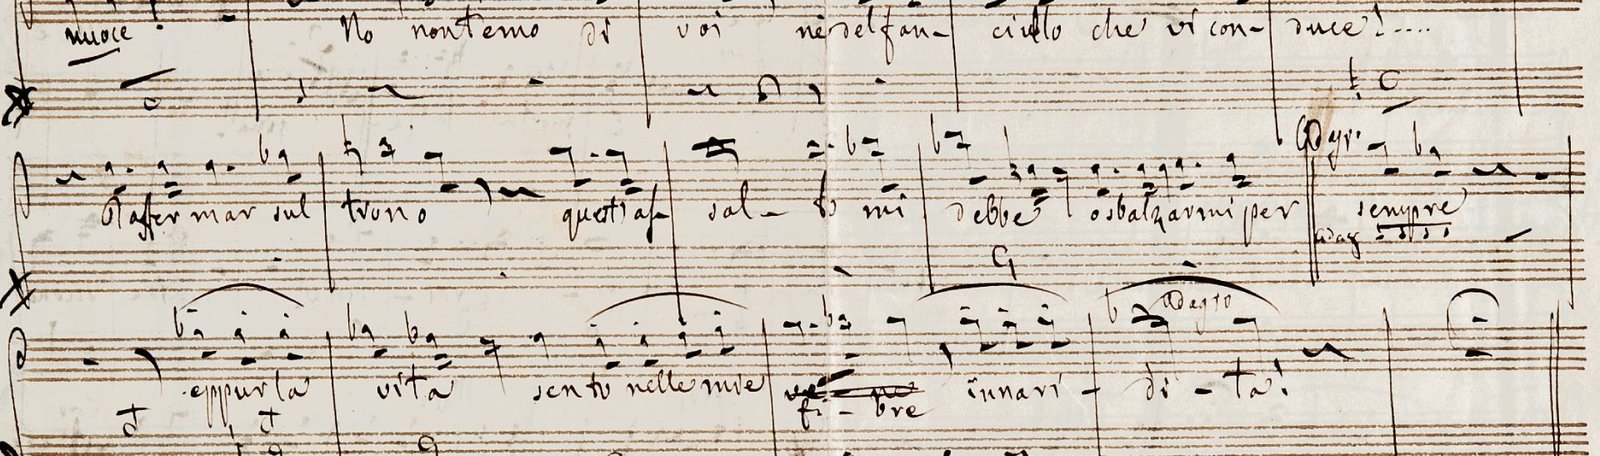 nuoce! No non temo di voi nè del fan- ciullo che vi con- duce!....
Adgo.
raffermar sul trono quest'as- sal- to mi debbe o sbalzarmi per sempre
adag
adagio
eppur la vita sento nelle mie fi- bre innari- di- ta!